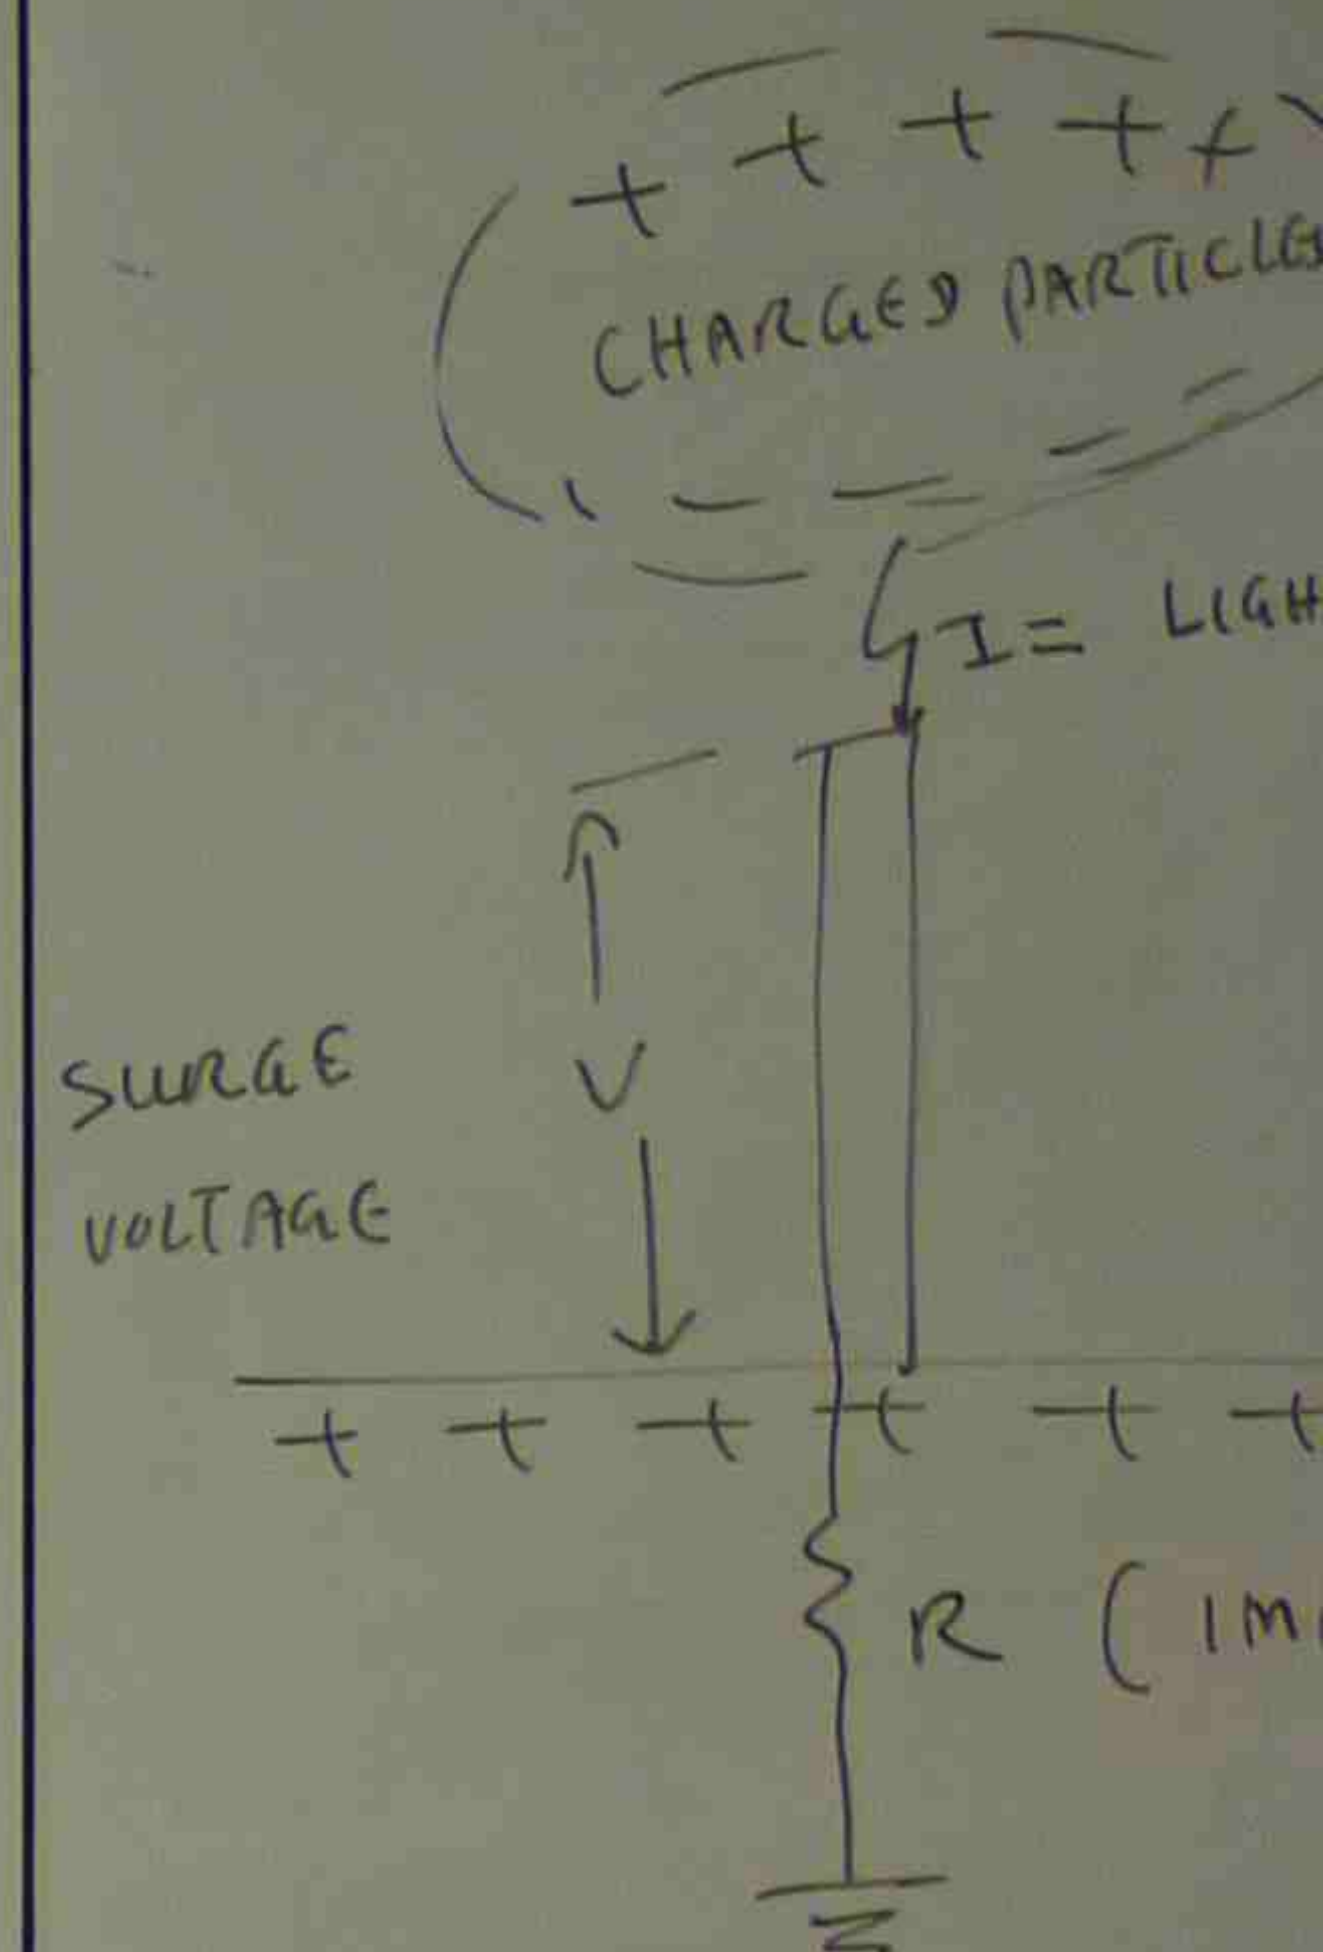 + + + + +
CHARGED PARTICLES
- - - - -
I = LIGH
SURGE
V
VOLTAGE
+ + + + + +
R ( IM